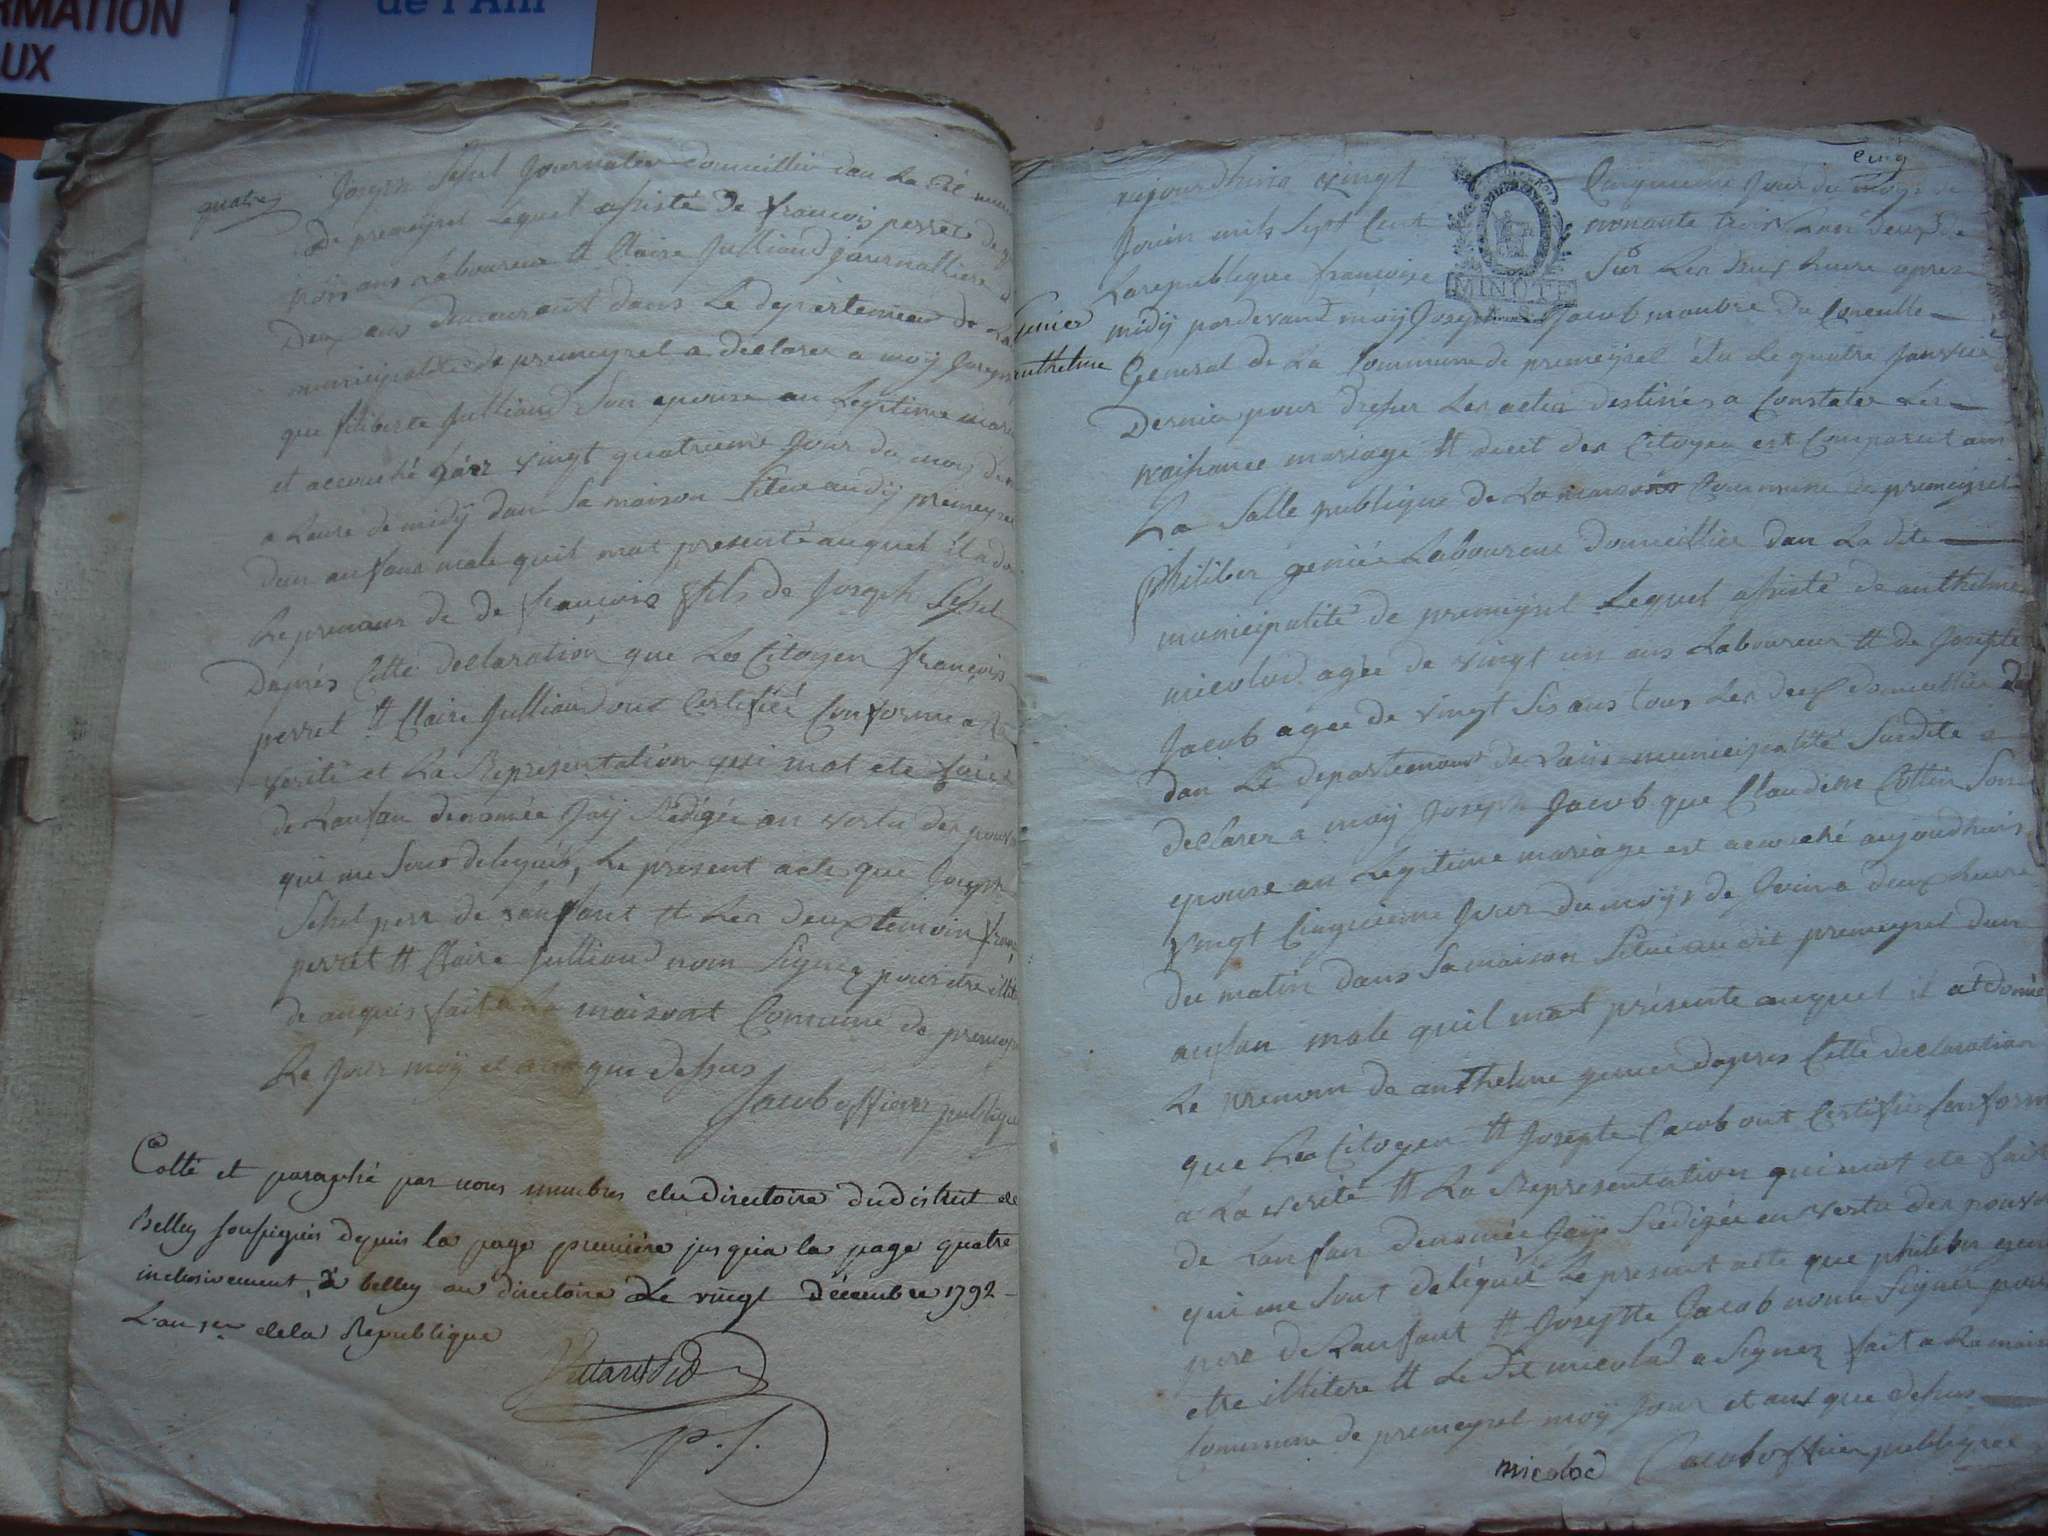 RMATION
UX
de l'Ain
quatre
Joseph Sessel Journalier domeillier dan La dit muni
De premeyzel Lequel assisté de françois perret de
trois ans Laboureur tt Claire Julliand journalliere
Deux ans demeurant dans Le departement de
municipalité de premeyzel a declarer a moy Joseph
que filiberte Julliand Son epouse au Legitime mari
et accouché vingt quatrieme Jour du mois de
a Leure de midÿ dans Sa maison Situé audÿ premeyzel
dun anfans male quil mat presenté auquel il a do
Le prenom de de françois fils de Joseph Sessel
Daprés Cette declaration que Les Citoyen françois
perret tt Claire Julliand ont Certifiée Conforme a la
verité et La Représentation qui mat ete faite
de Lanfan denomée Jaÿ Rédigée an vertu des pouvo
qui me Sont delegués, Le présent acte que Joseph
Sessel pere de Lanfant tt Les deux temoin fran
perret tt Claire Julliand nom Signez pour etre illit
de anquis fait a La maison Comune de premey
Le Jour moÿ et ans que dessus
Jacob officier publique
Cotté et paraphé par nous membres du directoire du district de
Belley soussignés depuis la page première jusqu'a la page quatre
inclusivement, à belley au directoire Le vingt décembre 1792 -
L'an 1er de la République
p.s.
cinq
aujourdhuis vingt Cinquieme Jour du moys de
Jouin mils Sept Cent nonante trois Lan deux de
La republique françoise Sur Les deux heure apres
MINUTE
Genier
anthelme
midÿ pardevand moÿ Joseph Jacob manbre du Coneille
General de La Commune de premeyzel élu Le quatre Janvier
Dernier pour dresser Les actes destinés a Constater Les
naissance mariage tt decet des Citoyen est Comparut ans
La Salle publique de La maison Commune de premeyzel
Philiber geniér Laboureur domeillier dan La dite
municipalité de premeyzel Lequel assisté de anthelme
micolod agée de vingt un ans Laboureur tt de Josepte
Jacob agée de vingt Sis ans tous Les deux domeillier
dan Le departement de Lain municipalité Surdite a
declarer a moÿ Joseph Jacob que Claudine Cottin Son
epouse an Legitime mariage est acouché aujourdhuis
vingt Cinquieme Jour du moys de Jouin a deux heure
du matin dans Sa maison Situé au dit premeyzel dun
anfan male quil mat présenté auquel il at donné
Le prenom de anthelme genier daprés Cette declaration
que Les Citoyen tt Josepte Jacob ont Certifié Conforme
a La verité tt La Représentation qui mat ete faite
de Lanfan denomée Jaÿ Redigée en vertu des pouvo
qui me Sont delégués Le present acte que philiber geni
pere de Lanfant tt Josepte Jacob nom Signés pour
etre illitere tt Le dit micolod a Signez fait a La maison
Commune de premeyzel moÿ Jour et ans que dessus
micolod Jacob officier publique